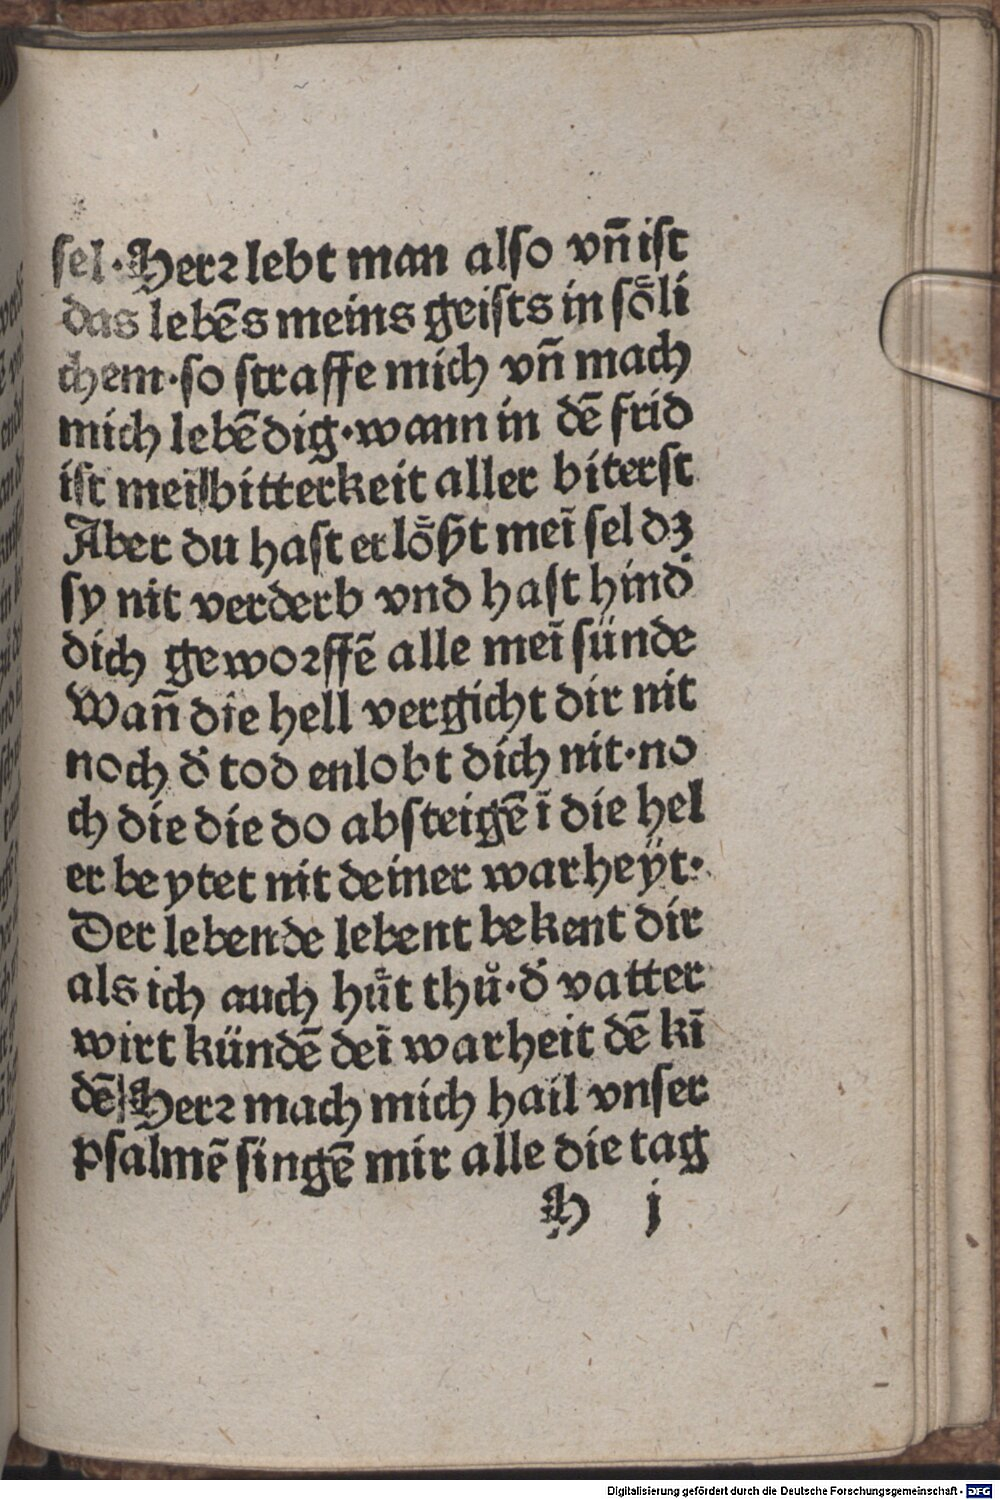 sel·Herꝛ lebt man also vn̄ ist
das lebēs meins geists in soͤli
chem·so straffe mich vn̄ mach
mich lebēdig·wann in dē frid
ist meī bitterkeit aller biterst
Aber du hast erloͤßt meī sel dꝫ
sy nit verderb vnd hast hind̓
dich gewoꝛffē alle meī sünde
Wan̄ die hell vergicht dir nit
noch d̓ tod enlobt dich nit·no
ch die die do absteigē ī die hel
er beytet nit deiner warheÿt·
Der lebende lebent bekent dir
als ich auch huͤt thuͦ·d̓ vatter
wirt kündē deī warheit dē kī
dē Herꝛ mach mich hail vnser
psalmē singē mir alle die tag
H j
Digitalisierung gefördert durch die Deutsche Forschungsgemeinschaft - DFG